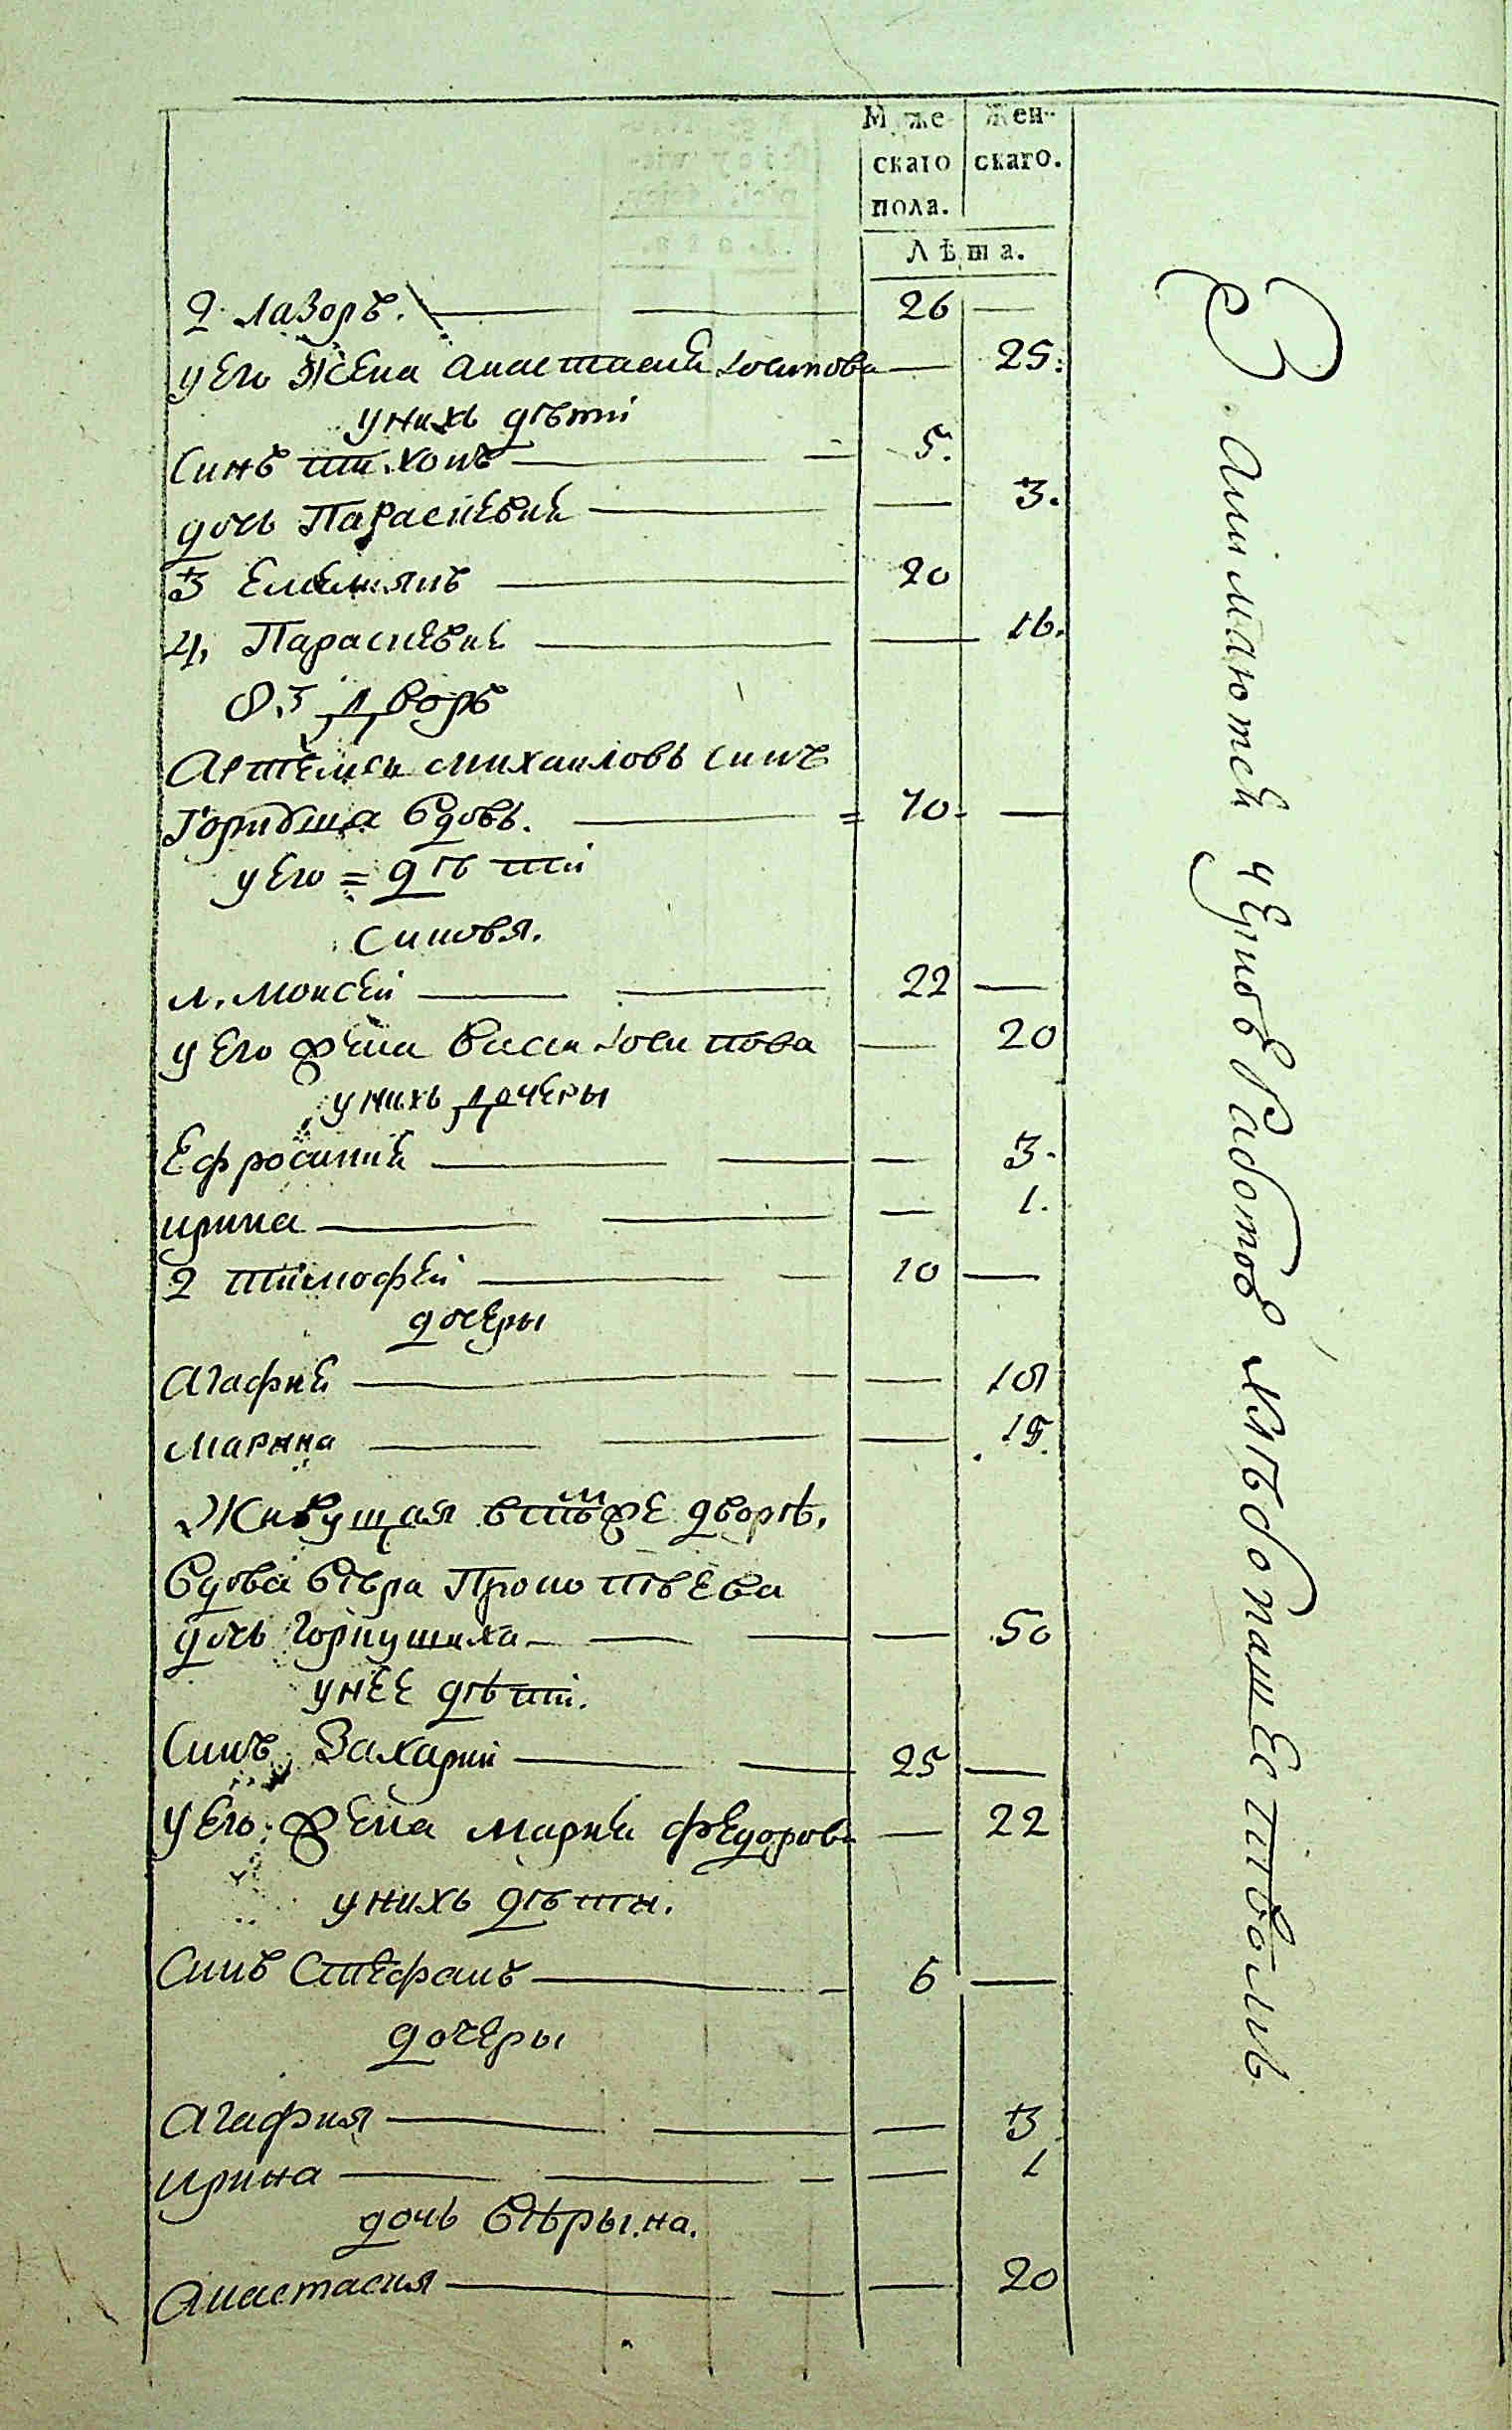 Мꙋже- Жен-
скаго скаго.
пола.
Лѣта.
2. Лазоръ. 26
у Его Жена Анастасиѣ Іосипова 25.
унихъ дѣти
Синъ тихонъ 5.
дочь Параскевиѣ 3.
3 Емелиянъ 20
4, Параскевиѣ 16.
83 Дворъ
Артемей михаиловъ синъ
вдовъ. 70.
у Его = дѣти
Синовя.
1. Моисей 22
у Его жена Васса Іосипова 20
унихъ Дочеры
Ефросиниѣ 3.
ирина 1.
2 тимофей 10
дочеры
Агафиѣ
марина 15.
Живущая втомже дворѣ,
Вдова Вѣра
дочь 50
унее дѣти.
Синъ Захарий 25
у Его жена мариѣ федорова 22
унихъ дѣти.
Синъ Стефанъ 6
дочеры
Агафия 3
ирина 1
дочь Вѣры.на.
Анастасия 20
Занимаютсѣ чернов работов хлѣбопашествомъ